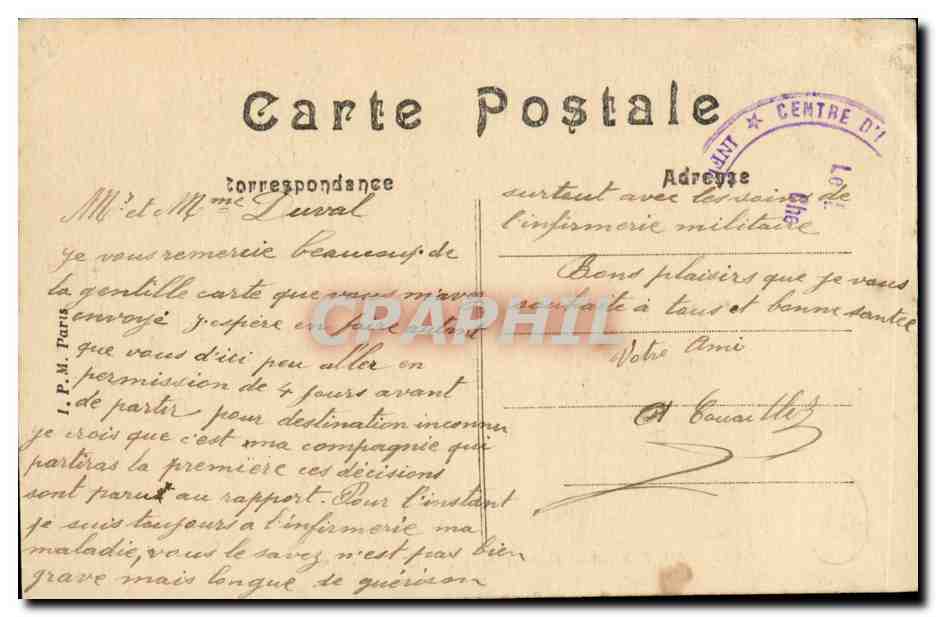 Carte Postale
Correspondance
Mr et Mme Duval
je vous remercie beaucoup de
la gentille carte que vous m'avez
envoyé j'espère en faire autant
que vous d'ici peu aller en
permission de 4 jours avant
de partir pour destination inconnu
je crois que c'est ma compagnie qui
partiras la première ces décisions
sont parut au rapport. Pour l'instant
je suis toujours a l'infirmerie ma
maladie, vous le savez n'est pas bien
grave mais longue de guérison
Adresse
surtout avec les soins de
l'infirmerie militaire
Bons plaisirs que je vous
souhaite à tous et bonne santée
Votre Ami
I. P. M. Paris
CENTRE D'I
INFI
Le
Che
CRAPHIL